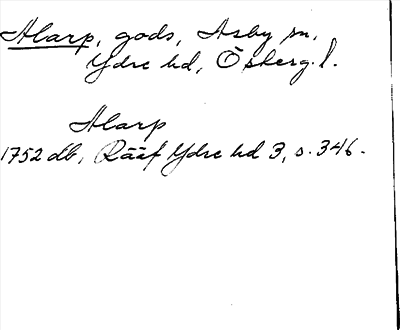 Alarp, gods, Asby sn,
Ydre hd, Östergl.
Alarp
1752 db, Rääf Ydre hd 3, s. 346.